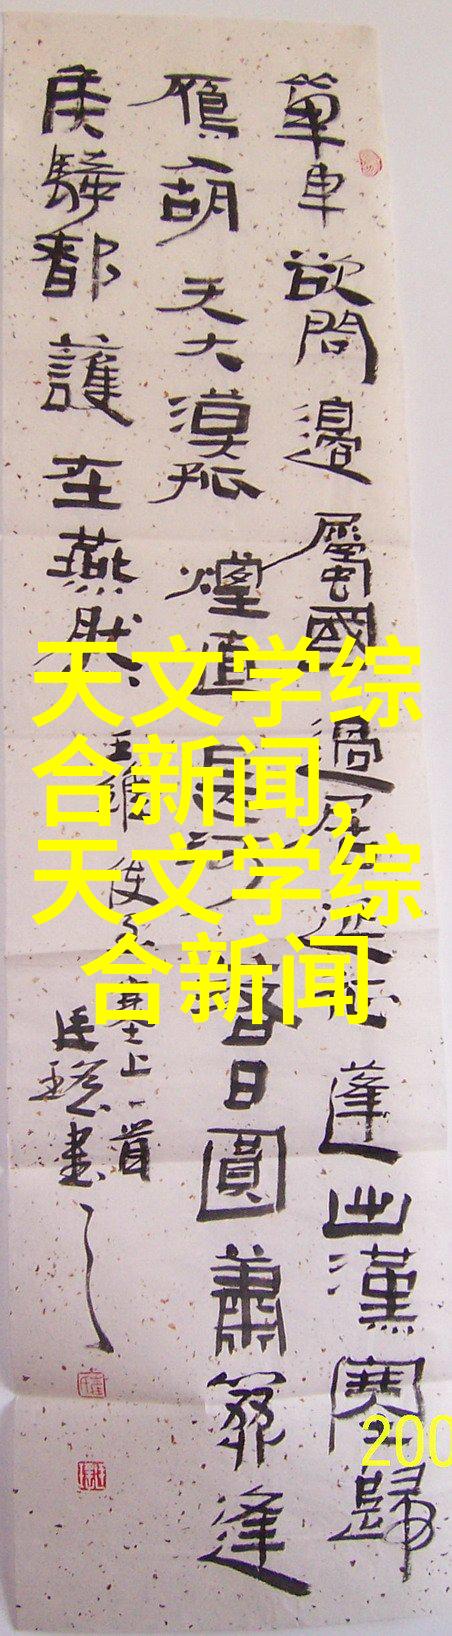 單車欲問邊屬國過居延征蓬出漢塞歸
雁入胡天大漠孤煙直長河落日圓蕭關逢
侯騎都護在燕然
王維使至塞上一首
書
天文学综
合新闻,
天文学综
合新闻
200